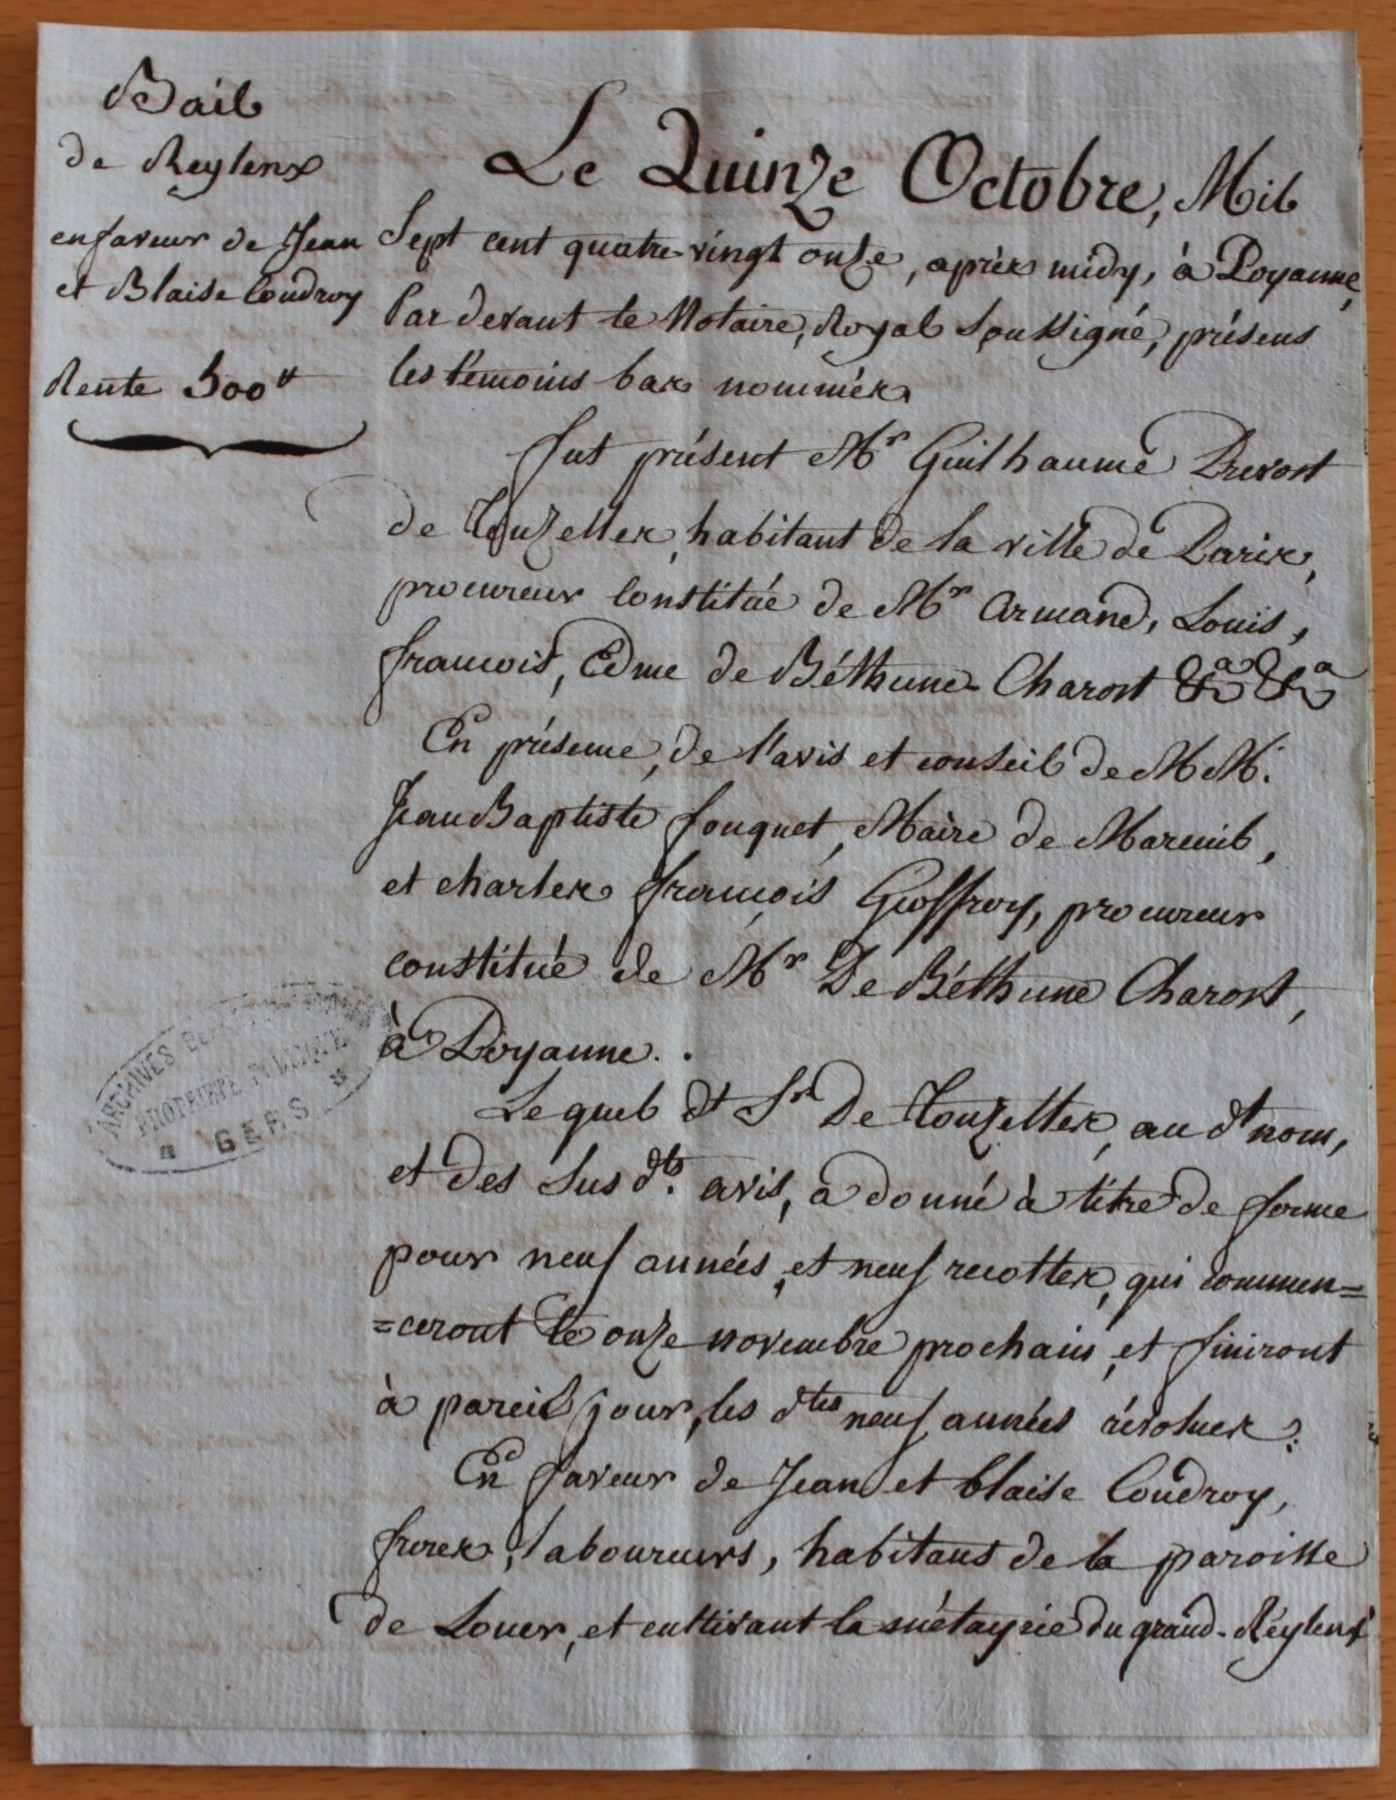 Bail
de Reylenx
en faveur de Jean
et Blaise Coudroy
Rente 500
Le Quinze Octobre, Mil
Sept cent quatre-vingt onze, après midy, à Poyanne,
Par devant le Notaire, Royal Soussigné, présens
les témoins bas nommés
fut présent Mr Guilhaume Prevost
de Touzelles, habitant de la ville de Paris,
procureur constitué de Mr Armand, Louis,
francois, Edme de Béthune-Charost &a &a
En présence, de l'avis et conseil de MM.
Jean Baptiste fouquet, Maire de Mareuil,
et charles françois Geoffroy, procureur
constitué de Mr De Béthune Charost,
à Poyanne.
Lequel dt Sr De Touzelles, au dt nom,
et des Sus dts. avis, a donné à titre de ferme
pour neuf années, et neuf recoltes, qui commen=
=ceront le onze novembre prochain, et finiront
à pareil jour, les dtes neuf années révolues.
En faveur de Jean et blaise Coudroy,
freres, laboureurs, habitans de la paroisse
de Louer, et cultivant la métayrie du grand-Réylenx
ARCHIVES
PROPRIÉTÉ PUBLIQUE
GERS